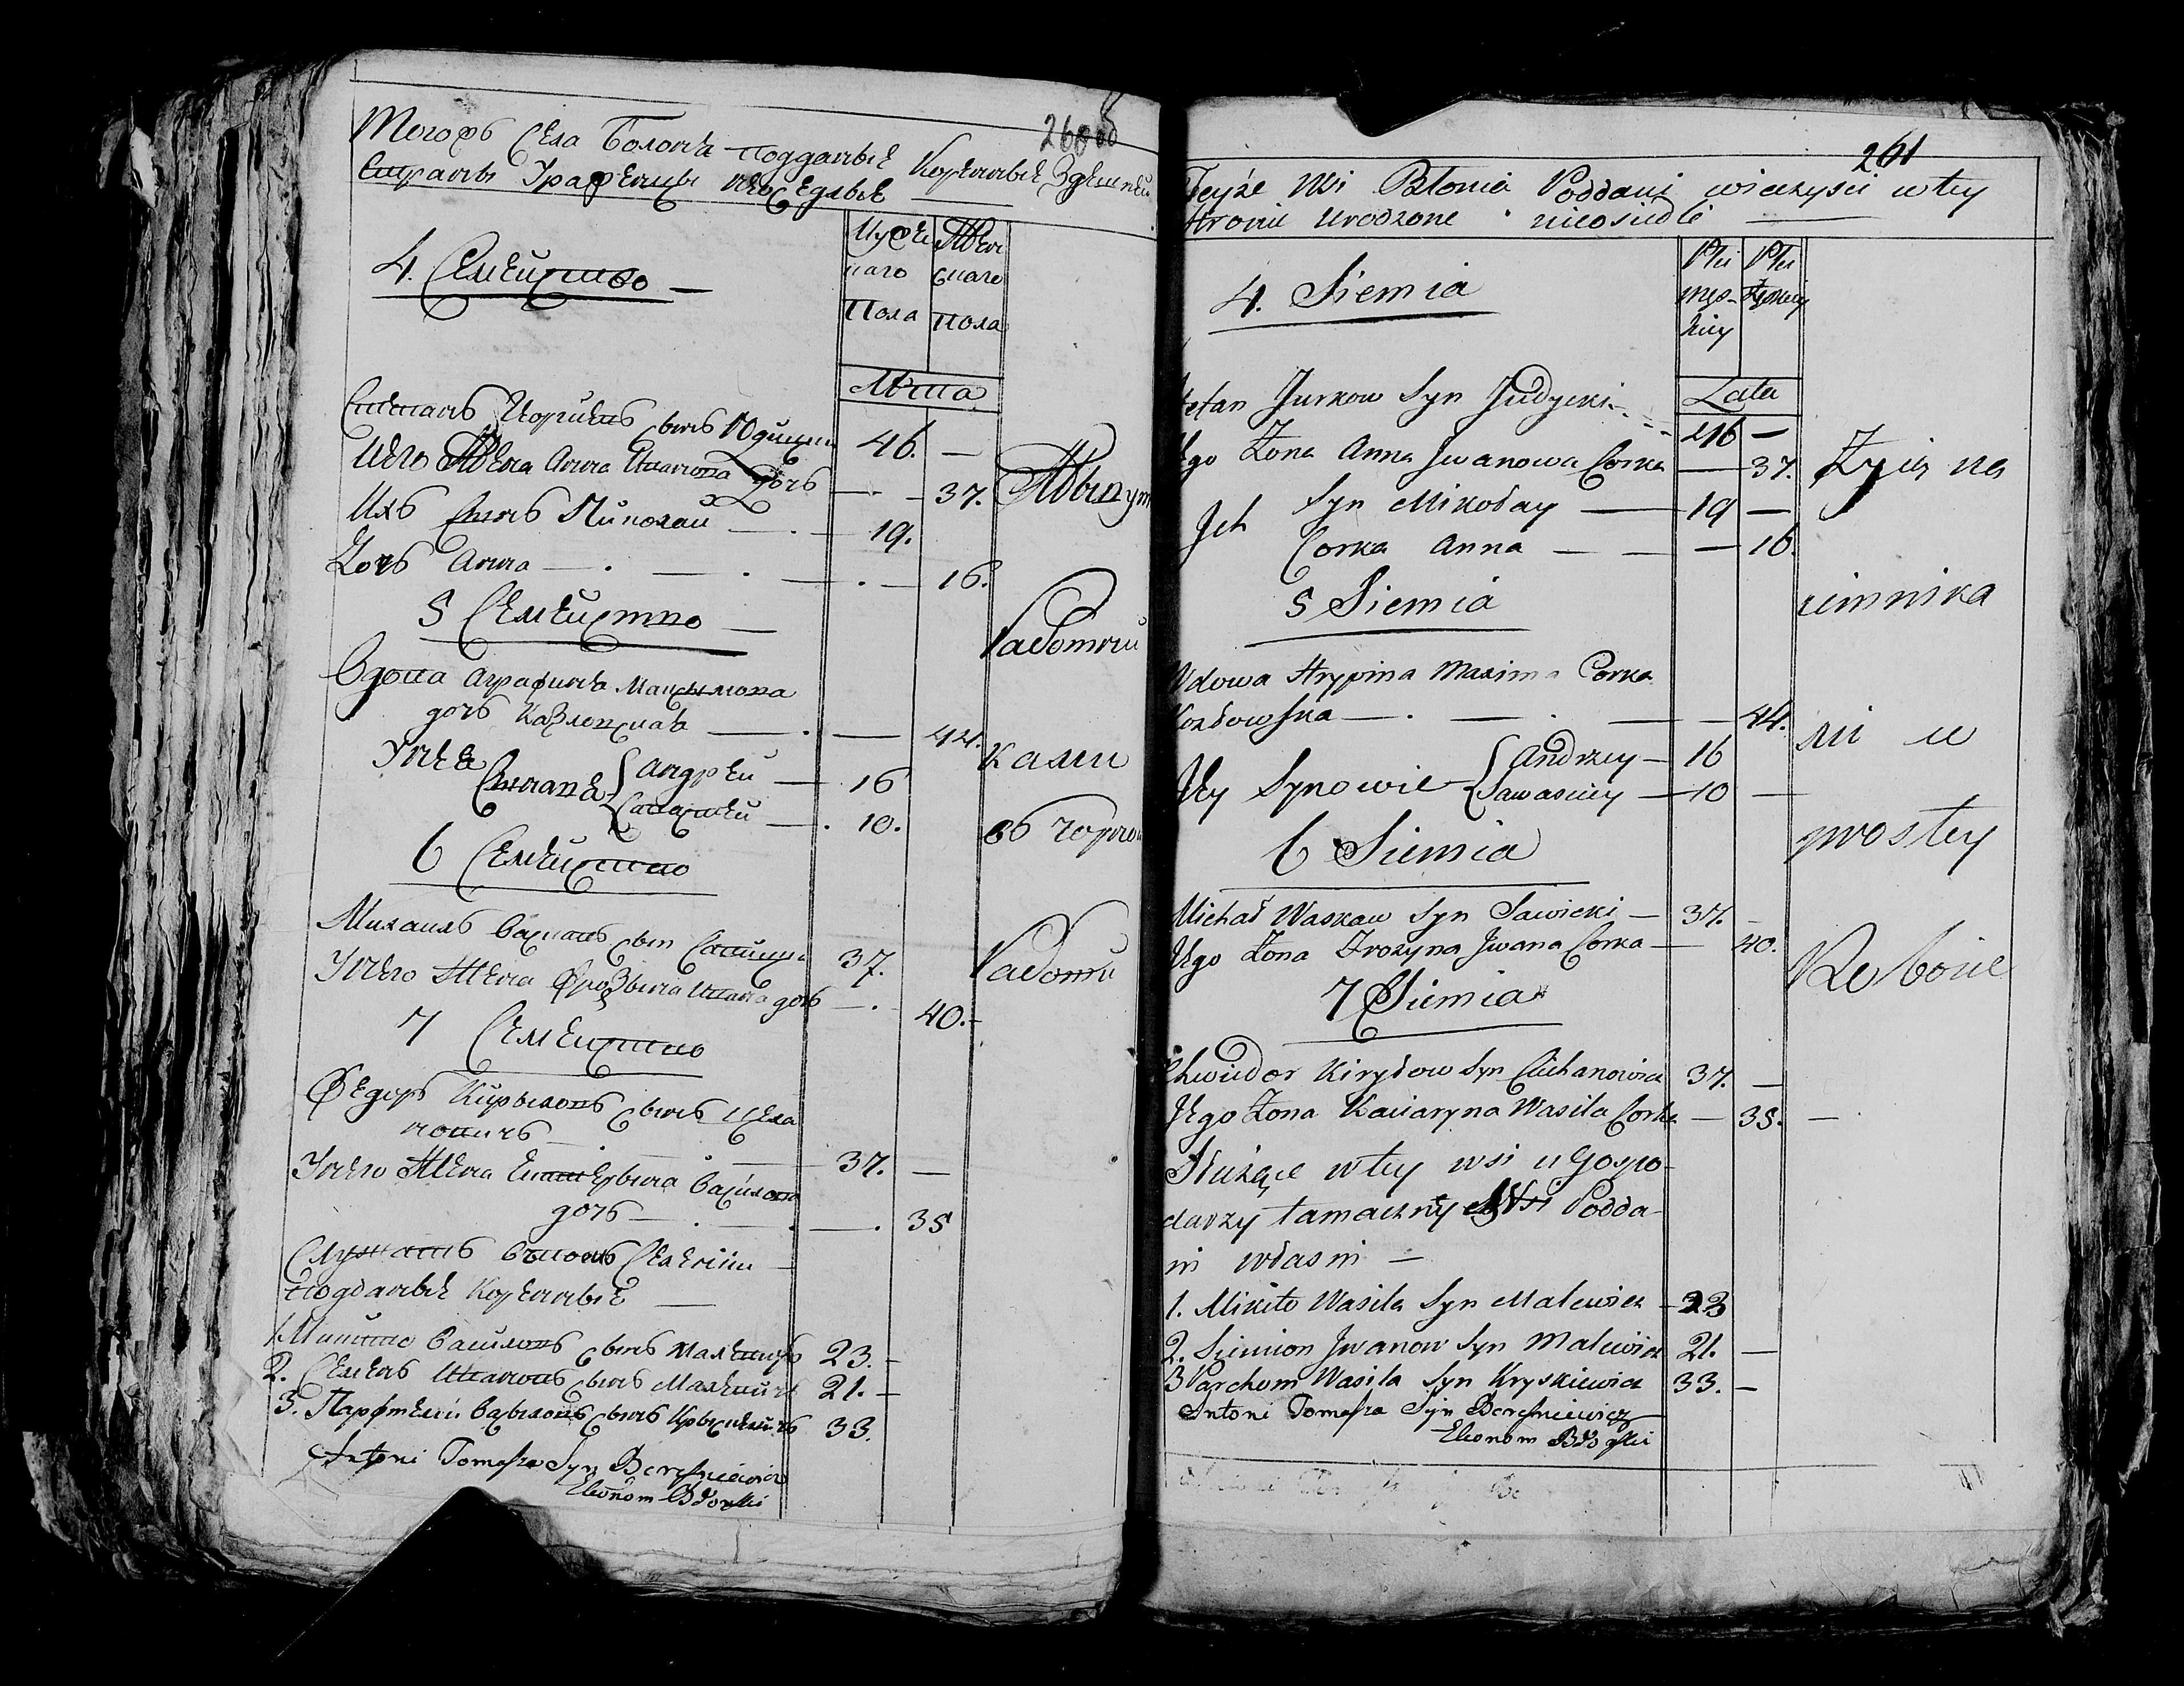 260
Тогожъ Села Болонѣ подданые Коренные Здешней
Страны Урафенцы неоседлые
4. Семейство
Мужескаго Пола
Женскаго Пола
Лѣта
Степанъ Юрковъ сынъ Юдицки 46. —
Его Жена Анна Иванова Дочь — 37.
Ихъ Сынъ Миколай — 19.
Дочь Анна — 16.
5 Семейство
Вдова Аграфина Максымова
дочь Казловская — 44.
У нее Сынове { Андрей — 16
Савастей — 10.
6 Семейство
Михаилъ Васковъ сын Савицки 37.
У него Жена Фрозына Ивана дочь — 40.
7 Семейство
Федоръ Кирыловъ сынъ
37. —
У него Жена Катерына Василова
дочь — 35
Служащие
подданые Коренные —
1. Микита Василовъ сынъ Малевичъ 23. —
2. Семенъ Ивановъ сынъ Малевичъ 21. —
3. Парфтеній Васыловъ сынъ Крыскевичъ 33.
Antoni Tomasza Syn Beresniewicz
Ekonom Błoński
Живут
на
работой
261
Teyże Wsi Błonia Poddani wieczyści w tey
stronie urodzone nieosiedli —
4. Siemia
Płci męskiey
Płci Żęskiey
Lata
Stefan Jurkow Syn Judycki — 46 —
Jego Żona Anna Jwanowa Corka — 37.
Jch Syn Mikołay — 19 —
Corka Anna — — 16.
5 Siemia
Wdowa Hrypina Maxima Corka
Kozłowska — . — . — 44.
Jey Synowie { Andrzey — 16
Sawasciey — 10 —
6 Siemia
Michał Waskow Syn Sawicki — 37. —
Jego Żona Zrozyna Jwana Corka — 40.
7 Siemia
Chwiedor Kiryłow Syn Ciechanowicz 37. —
Jego Żona Kaciaryna Wasila Corka — 35. —
Służące w tey wsi u Gospo-
darzy tamaczney Wsi Podda-
ni własni —
1. Mikito Wasila Syn Malewicz — 23
2. Siemion Jwanow Syn Malewicz 21. —
3 Parchom Wasila Syn Kryskiewicz 33. —
Antoni Tomasza Syn Beresniewicz
Ekonom Błoński
Żyią na
prostey
Robocie